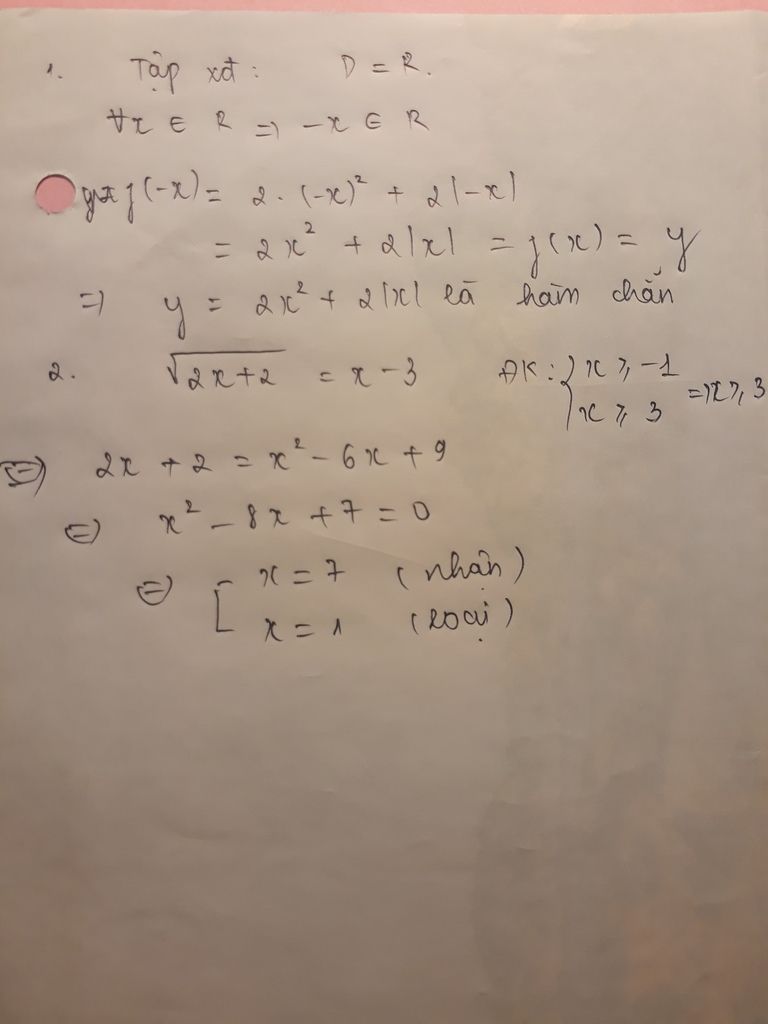 1. Tập xđ: D = R.
∀x ∈ R => -x ∈ R
f(-x) = 2.(-x)² + 2|-x|
= 2x² + 2|x| = f(x) = y
=> y = 2x² + 2|x| là hàm chẵn
2. √(2x+2) = x - 3 ĐK: { x ≥ -1
x ≥ 3 => x ≥ 3
<=> 2x + 2 = x² - 6x + 9
<=> x² - 8x + 7 = 0
<=> [ x = 7 (nhận)
x = 1 (loại)